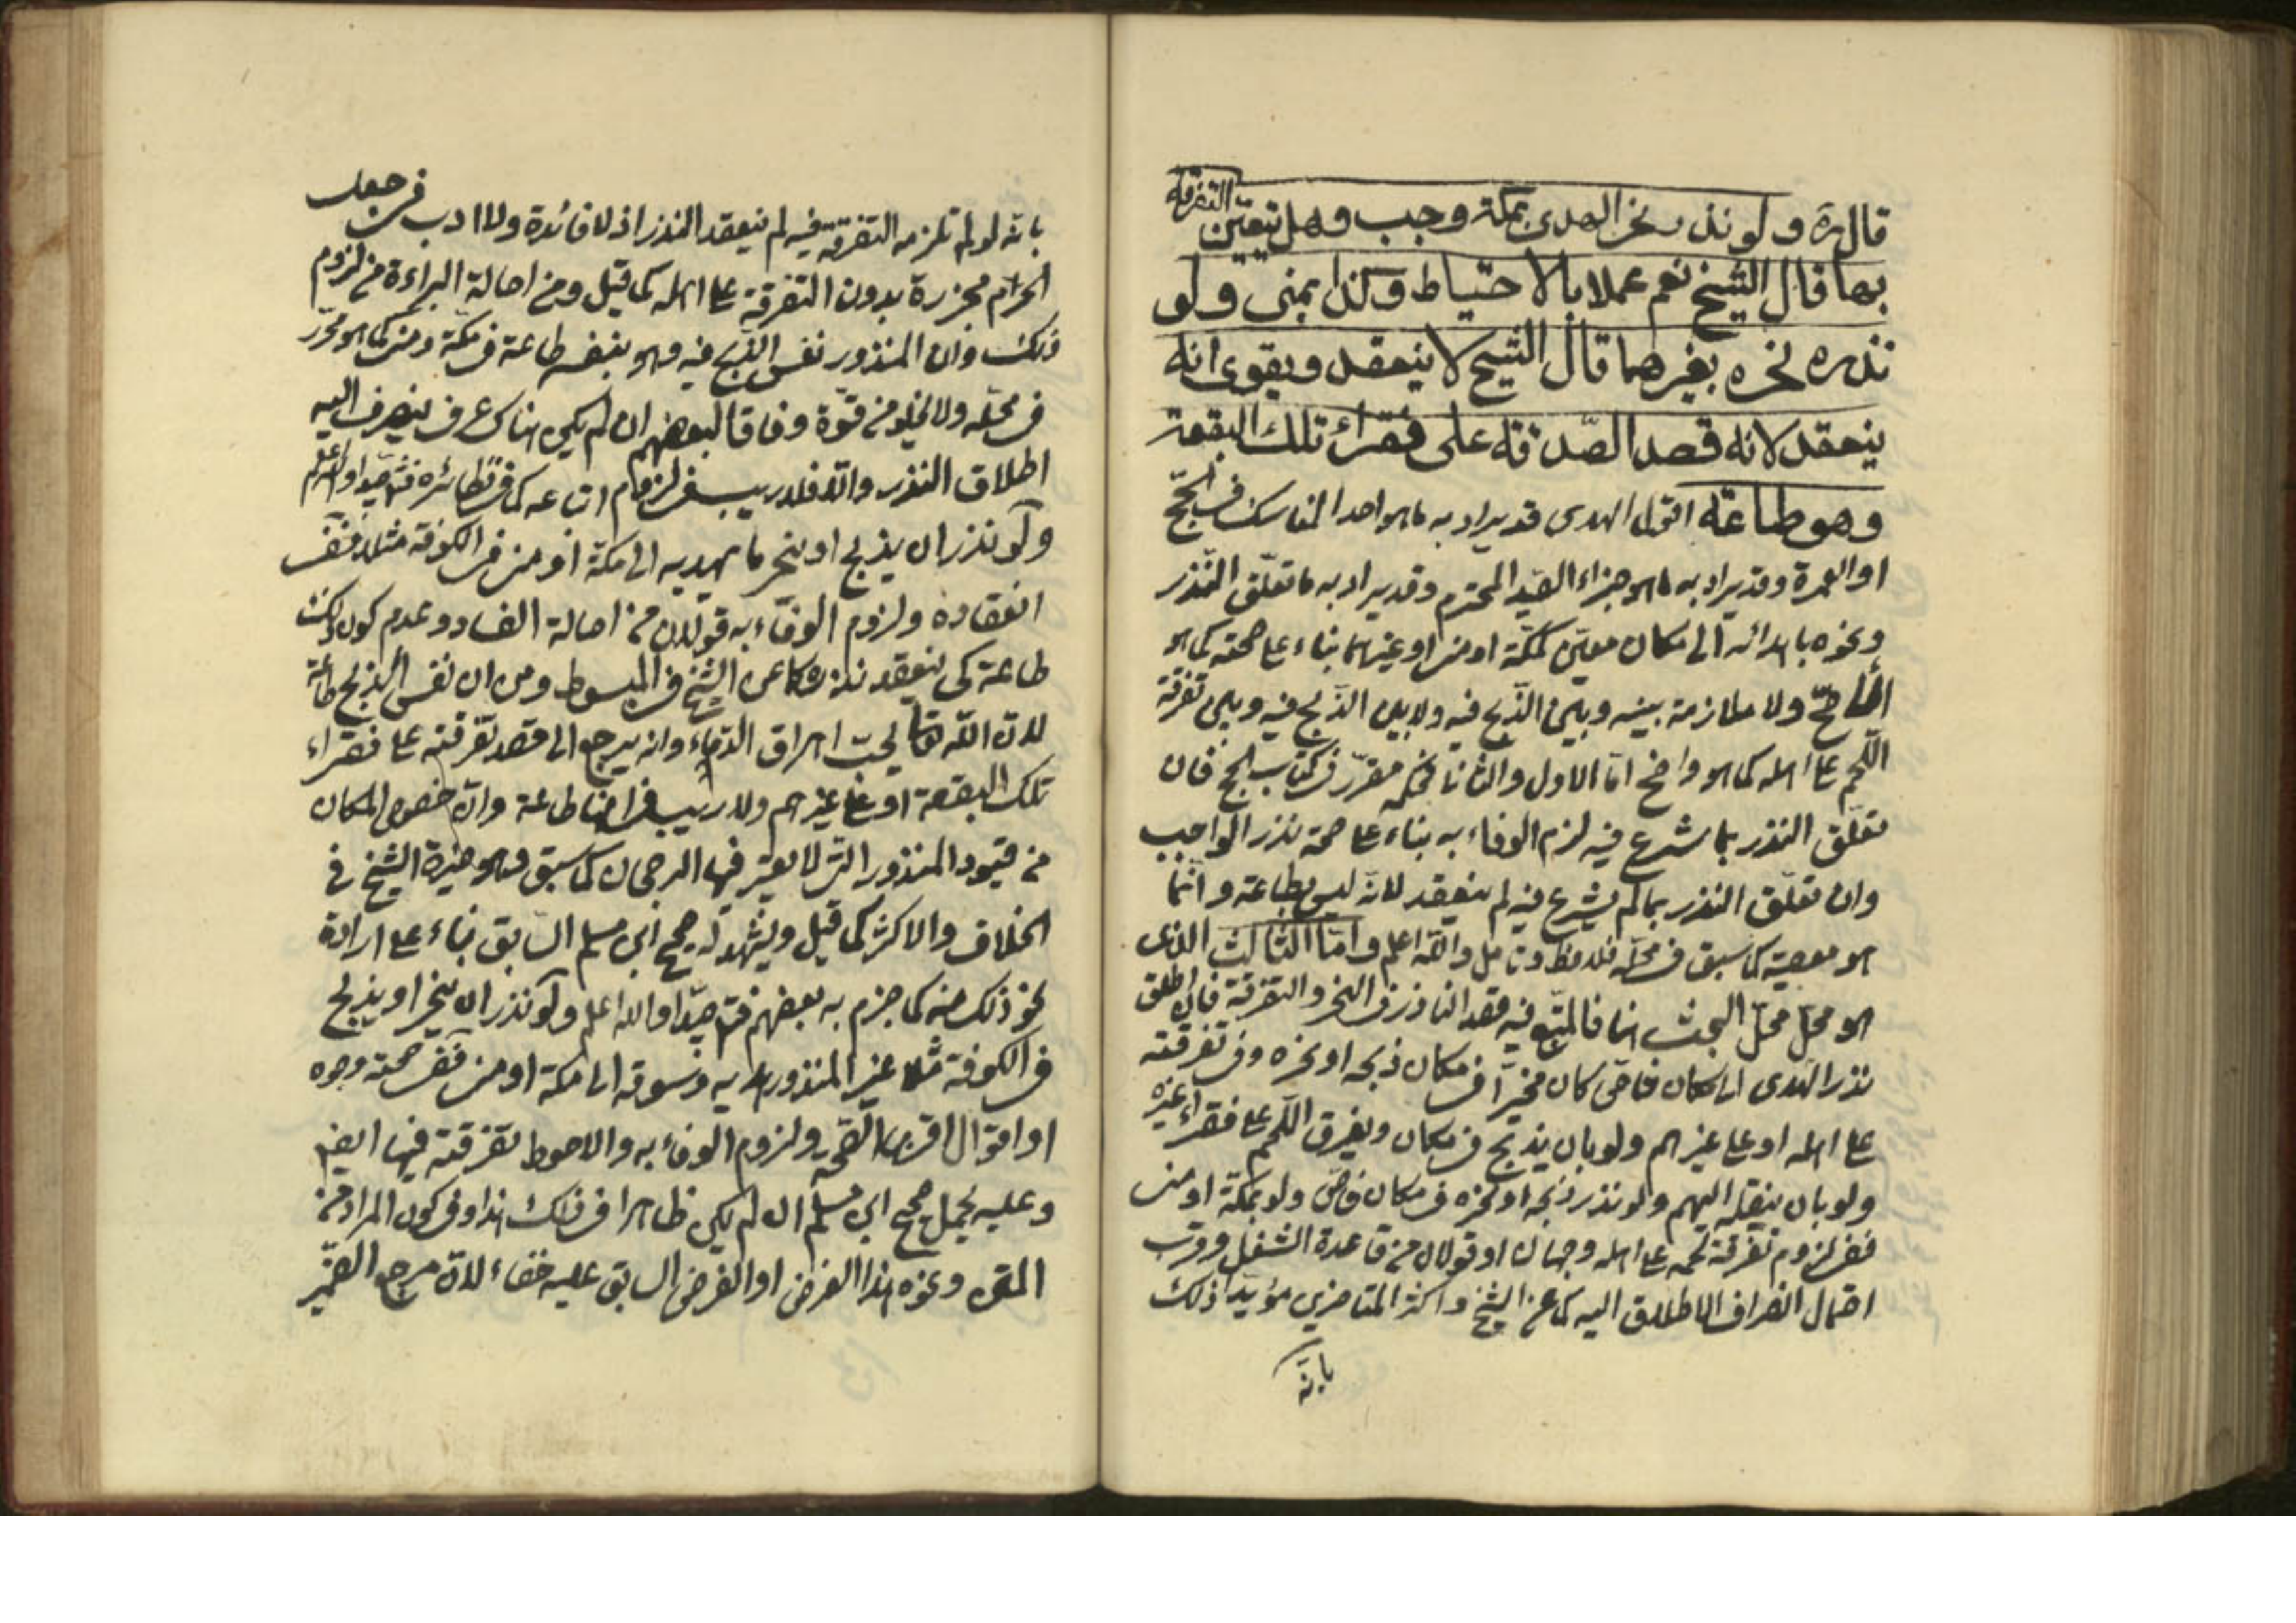 قال ره ولو نذر نحر الهدى بمكة وجب وهل يتعين التفرقة
بها قال الشيخ نعم عملا بالاحتياط وكذا بمنى ولو
نذره نحره بغيرهما قال الشيخ لا ينعقد ويقوى انه
ينعقد لانه قصد الصدقة على فقراء تلك البقعة
وهو طاعة اقول الهدى قد يراد به ما هو احد المناسك فى الحج
او العمرة وقد يراد به ما هو جزاء الصيد المحترم وقد يراد به ما تعلق النذر
ونحوه باهدائه الى مكان معين كمكة او منى او غيرهما بناء على صحته كما هو
الاصح ولا ملازمة بينه وبين الذبح فيه ولا بين الذبح فيه وبين تفرقة
اللحم على اهله كما هو واضح اما الاول والثانى فحكمه مقرر فى كتاب الحج فان
تعلق النذر بما شرع فيه لزم الوفاء به بناء على صحة نذر الواجب
وان تعلق النذر بما لم يشرع فيه لم ينعقد لانه ليس بطاعة وانما
هو معصية كما سبق فى محله فلاحظ وتامل والله اعلم واما الثالث الذى
هو محل البحث هنا فالمتبع فيه قصد الناذر فى النحر والتفرقة فان اطلق
نذر الهدى الى مكان خاص كان مخيرا فى مكان ذبحه او نحره وفى تفرقته
على اهله او على غيرهم ولو بان يذبح فى مكان ويفرق اللحم على فقراء غيره
ولو بان ينقله اليهم ولو نذر ذبحه او نحره فى مكان خاص ولو بمكة او منى
ففى لزوم تفرقة لحمه على اهله وجهان او قولان من قاعدة الشغل وقرب
احتمال انصراف الاطلاق اليه كما عن الشيخ واكثر المتاخرين مؤيدا ذلك
بانه
بانه لو لم تلزمه التفرقة فيه لم ينعقد النذر اذ لا فائدة ولا ادب فى جعل
الحرم مجزرة بدون التفرقة على اهله كما قيل ومن اصالة البراءة من لزوم
ذلك وان المنذور نفس الذبح فيه وهو بنفسه طاعة فى مكة ومنى كما هو محرر
فى محله ولا يخلو من قوة وفاقا لبعضهم ان لم يكن هناك عرف ينصرف اليه
اطلاق النذر والا فلا ريب فى لزوم اتباعه كما فى نظائره فتدبر جيدا والله اعلم
ولو نذر ان يذبح او ينحر ما يهديه الى مكة او منى فى الكوفة مثلا ففى
انعقاده ولزوم الوفاء به قولان من اصالة الفساد وعدم كون ذلك
طاعة كى ينعقد نذره كما عن الشيخ فى المبسوط ومن ان نفس الذبح طاعة
لان الله تعالى يحب اهراق الدماء وانه يرجع الى قصد تفرقته على فقراء
تلك البقعة او على غيرهم ولا ريب فى انها طاعة وان خصوص المكان
من قيود المنذور التى لا يعتبر فيها الرجحان كما سبق وهو خيرة الشيخ فى
الخلاف والاكثر كما قيل ويشهد له صحيح ابن مسلم السابق بناء على ارادة
نحو ذلك منه كما جزم به بعضهم فتدبر جيدا والله اعلم ولو نذر ان ينحر او يذبح
فى الكوفة مثلا غير المنذور هديه وسوقه الى مكة او منى ففى صحته وجوه
او اقوال اقربها الصحة ولزوم الوفاء به والاحوط تفرقته فيها ايضا
وعليه يحمل صحيح ابن مسلم ان لم يكن ظاهرا فى ذلك هذا وفى كون المراد من
المتن ونحوه هذا الفرض او الفرض السابق عليه خفاء لان مرجع الضمير